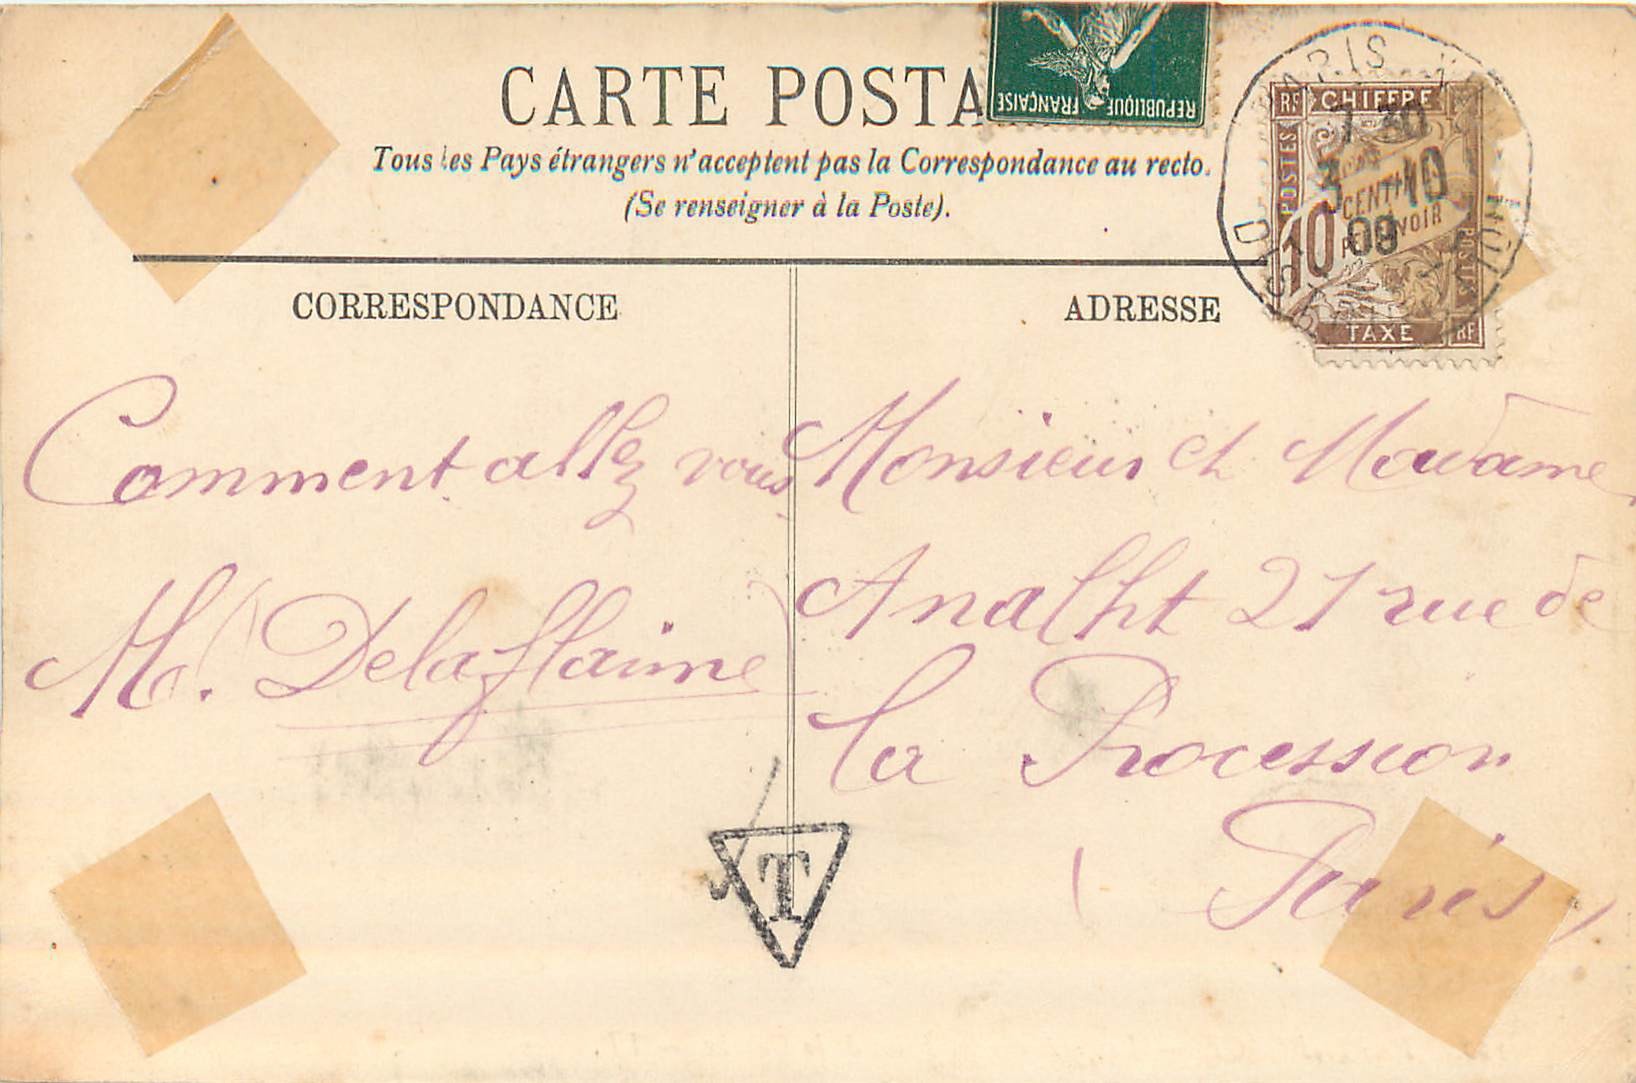 CARTE POSTA
REPUBLIQUE FRANÇAISE
Tous les Pays étrangers n'acceptent pas la Correspondance au recto.
(Se renseigner à la Poste).
PARIS
RF CHIFFRE
POSTES
7 30
3 -10
09
CENTIMES
10
POSTES
TAXE RF
DIST
CORRESPONDANCE
Comment allez vous
M. Delaflaime
T
ADRESSE
Monsieur et Madame
Analht 21 rue de
la Procession
Paris